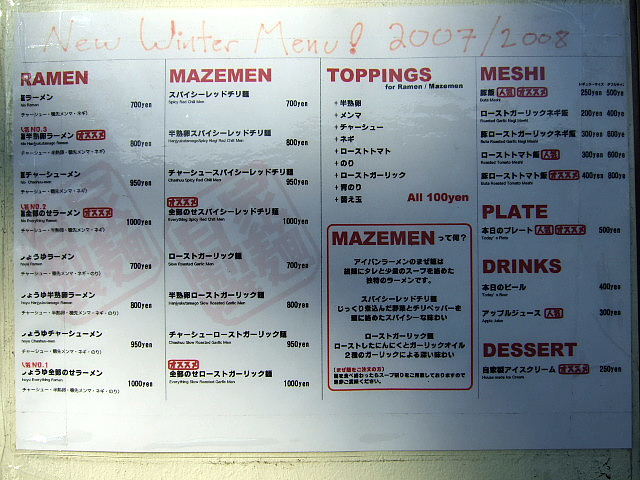 New Winter Menu! 2007/2008
RAMEN
ラーメン
Ramen
700yen
チャーシュー・穂先メンマ・ネギ
人気NO.3
半熟卵ラーメン オススメ
800yen
チャーシュー・半熟卵・穂先メンマ・ネギ
チャーシューメン
Chashu-men
950yen
チャーシュー・穂先メンマ・ネギ
人気NO.2
全部のせラーメン オススメ
Everything Ramen
1000yen
チャーシュー・半熟卵・穂先メンマ・ネギ
しょうゆラーメン
Ramen
700yen
チャーシュー・穂先メンマ・ネギ・のり
しょうゆ半熟卵ラーメン
800yen
チャーシュー・半熟卵・穂先メンマ・ネギ・のり
しょうゆチャーシューメン
950yen
チャーシュー・穂先メンマ・ネギ・のり
人気NO.1
しょうゆ全部のせラーメン
Everything Ramen
1000yen
チャーシュー・半熟卵・穂先メンマ・ネギ・のり
MAZEMEN
スパイシーレッドチリ麺
Spicy Red Chili Men
700yen
半熟卵スパイシーレッドチリ麺
800yen
チャーシュースパイシーレッドチリ麺
Chashuu Spicy Red Chili Men
950yen
オススメ
全部のせスパイシーレッドチリ麺
Everything Spicy Red Chili Men
1000yen
ローストガーリック麺
Slow Roasted Garlic Men
700yen
半熟卵ローストガーリック麺
Hanjyukutamago Slow Roasted Garlic Men
800yen
チャーシューローストガーリック麺
Chashuu Slow Roasted Garlic Men
950yen
オススメ
全部のせローストガーリック麺
Everything Slow Roasted Garlic Men
1000yen
TOPPINGS
for Ramen / Mazemen
+ 半熟卵
+ メンマ
+ チャーシュー
+ ネギ
+ ローストトマト
+ のり
+ ローストガーリック
+ 青のり
+ 替え玉
All 100yen
MAZEMENって何?
アイバンラーメンのまぜ麺は
綺麗にタレと少量のスープを絡めた
独特のラーメンです。
スパイシーレッドチリ麺
じっくり煮込んだ野菜とチリペッパーを
麺に絡めたスパイシーな味わい
ローストガーリック麺
ローストしたにんにくとガーリックオイル
2種のガーリックによる深い味わい
【まぜ麺をご注文の方】
麺を食べ終わったらスープ割りをご用意しておりますので
是非ご賞味ください。
MESHI
レギュラーサイズ ダブルサイズ
豚飯 人気 オススメ
Buta Meshi
250yen 500yen
ローストガーリックネギ飯
Roasted Garlic Negi Meshi
200yen 400yen
豚ローストガーリックネギ飯
300yen 600yen
ローストトマト飯 人気
Roasted Tomato Meshi
300yen 600yen
豚ローストトマト飯 オススメ
Buta Roasted Tomato Meshi
400yen 800yen
PLATE
本日のプレート 人気 オススメ
Today's Plate
500yen
DRINKS
本日のビール
Today's Beer
400yen
アップルジュース 人気
Apple Juice
300yen
DESSERT
自家製アイスクリーム オススメ
House made Ice Cream
250yen